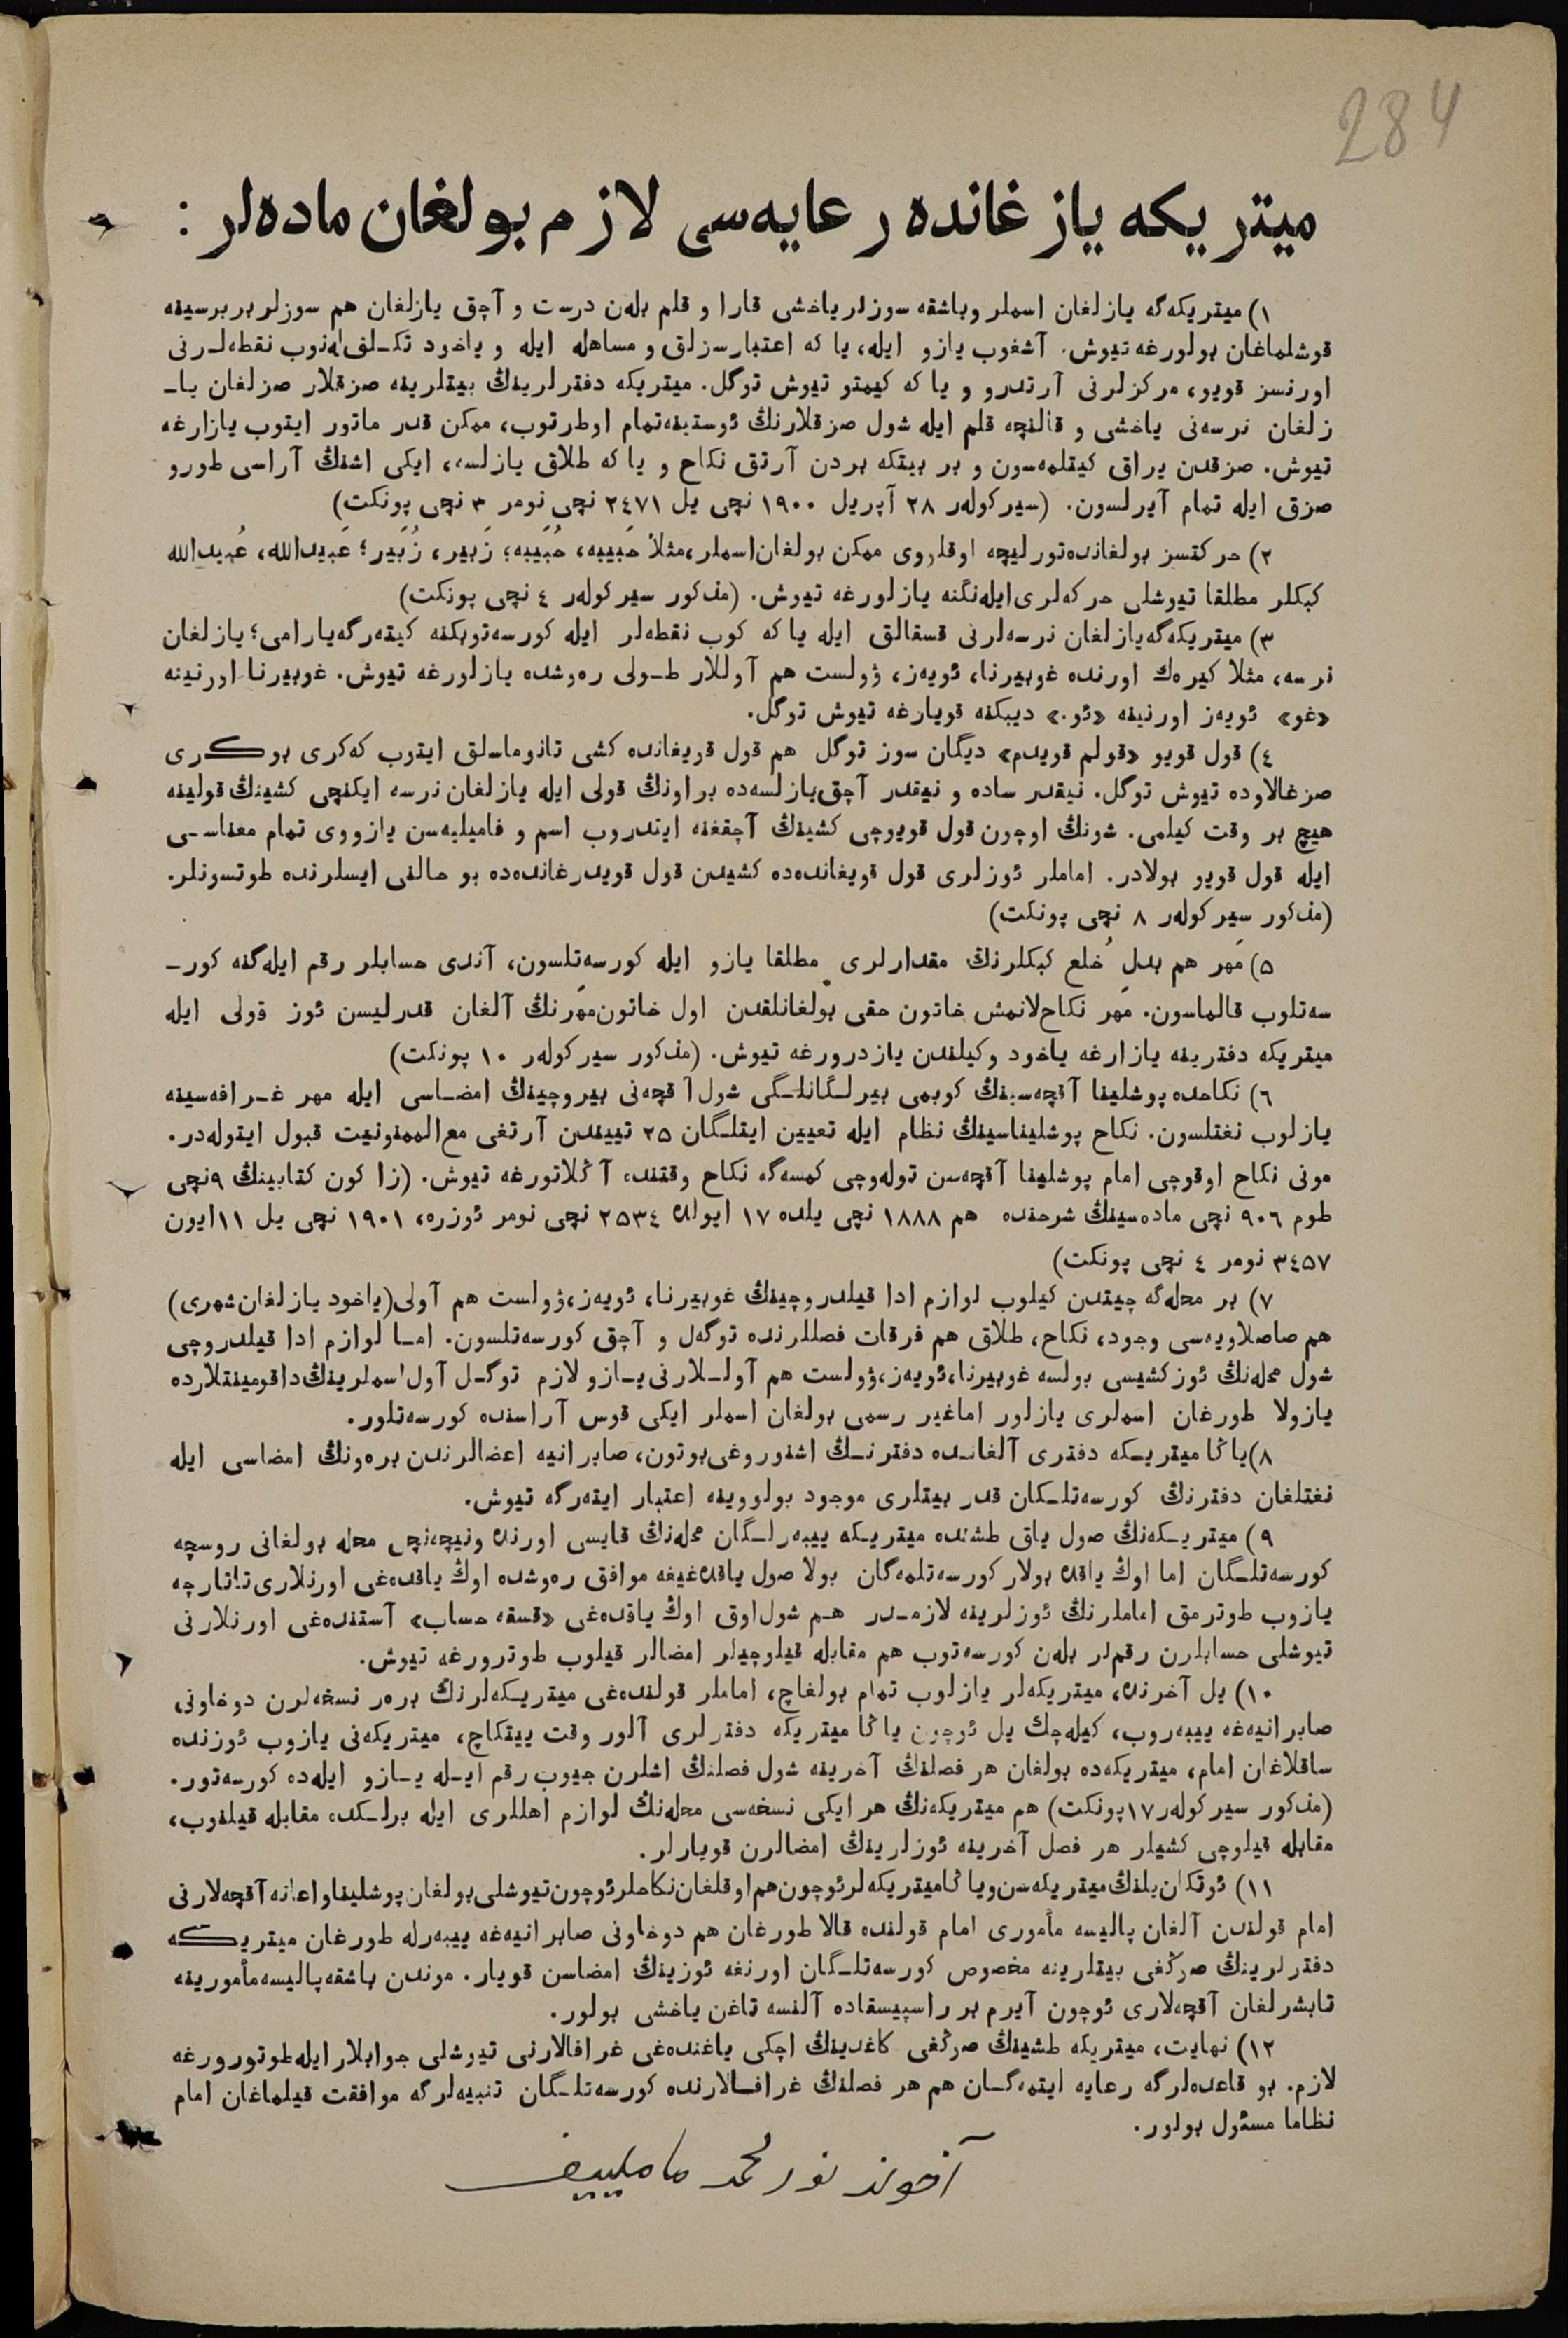 284
میتریکه یازغانده رعایه‌سی لازم بولغان ماده‌لر :
١) میتریکه‌گه یازلغان اسملر وباشقه سوزلر یاخشی قارا و قلم بلەن درست و آچق یازلغان هم سوزلر بربرسینه
قوشلماغان بولورغه تیوش. آشغوب یازو ایله، یا که اعتبارسزلق و مساهله ایله و یاخود تکـلف‌له‌نوب نقطه‌لـرنی
اورنسز قویو، مرکزلرنی آرتدرو و یا که کیمتو تیوش توگل. میتریکه دفترلرینڭ بیتلرینه صزقلار صزلغان یا‌ـ
زلغان نرسه‌نی یاخشی و قالنچه قلم ایله شول صزقلارنڭ ئوستینه‌تمام اوطرتوب، ممکن قدر ماتور ایتوب یازارغه
تیوش. صزقدن یراق کیتلمەسون و بر بیتکه بردن آرتق نکاح و یا که طلاق یازلسه، ایکی اشنڭ آراسی طورو
صزق ایله تمام آیرلسون. (سیرکولەر ٢٨ آپریل ١٩٠٠ نچی یل ٢٤٧١ نچی نومر ٣ نچی پونکت)
٢) حرکتسز بولغانده‌تورلیچه اوقلووی ممکن بولغان‌اسملر،مثلاً حَبیبه، حُبَیبه؛ زَبیر، زُبَیر؛ عَبیدالله، عُبیدالله
کبکلر مطلقا تیوشلی حرکه‌لری‌ایله‌نگنه یازلورغه تیوش. (مذکور سیرکولەر ٤ نچی پونکت)
٣) میتریکه‌گه‌یازلغان نرسه‌لرنی قسقالق ایله یا که کوب نقطه‌لر ایله کورسه‌توبکنه کیتەرگه‌یارامی؛ یازلغان
نرسه، مثلا کیره‌ك اورنده غوبیرنا، ئویه‌ز، ۋولست هم آوللار طـولی ره‌وشده یازلورغه تیوش. غوبیرنا اورنینه
«غو» ئویه‌ز اورنینه «ئو.» دیبکنه قویارغه تیوش توگل.
٤) قول قویو «قولم قویدم» دیگان سوز توگل هم قول قویغانده کشی تانوماسلق ایتوب که‌کری بوکـری
صزغالاوده تیوش توگل. نیقدر ساده و نیقدر آچق‌یازلسه‌ده براونڭ قولی ایله یازلغان نرسه ایکنچی کشینڭ قولینه
هیچ بر وقت کیلمی. شونڭ اوچون قول قویوچی کشینڭ آچقغنه ایتدروب اسم و فامیلیه‌سن یازووی تمام معناسـی
ایله قول قویو بولادر. اماملر ئوزلری قول قویغانده‌ده کشیدن قول قویدرغانده‌ده بو حالنی ایسلرنده طوتسونلر.
(مذکور سیرکولەر ٨ نچی پونکت)
٥) مَهر هم بدلِ خُلع کبکلرنڭ مقدارلری مطلقا یازو ایله کورسه‌تلسون، آندی حسابلر رقم ایله‌گنه کورـ
سه‌تلوب قالماسون. مَهر نکاح‌لانمش خاتون حقی بولغانلقدن اول خاتون‌مَهرنڭ آلغان قدرلیسن ئوز قولی ایله
میتریکه دفترینه یازارغه یاخود وکیلندن یازدرورغه تیوش. (مذکور سیرکولەر ١٠ پونکت)
٦) نکاحده پوشلینا آقچه‌سینڭ کوبمی بیرلـگانلـگی شول آقچه‌نی بیروچینڭ امضـاسی ایله مهر غـرافه‌سینه
یازلوب نغتلسون. نکاح پوشلیناسینڭ نظام ایله تعیین ایتلـگان ٢٥ تییندن آرتغی مع‌الممنونیت قبول ایتوله‌در.
مونی نکاح اوقوچی امام پوشلینا آقچه‌سن تولەوچی کمسه‌گه نکاح وقتنده آڭلاتورغه تیوش. (زاکون کتابینڭ ٩نچی
طوم ٩٠٦ نچی ماده‌سینڭ شرحنده هم ١٨٨٨ نچی یلده ١٧ ایولده ٢٥٣٤ نچی نومر ئوزره، ١٩٠١ نچی یل ١١ایون
٣٤٥٧ نومر ٤ نچی پونکت)
٧) بر محله‌گه چیتدن کیلوب لوازم ادا قیلدروچینڭ غوبیرنا، ئویه‌ز،ۋولست هم آولی(یاخود یازلغان‌شهری)
هم صاصلاویه‌سی وجود، نکاح، طلاق هم فرقات فصللرنده توگه‌ل و آچق کورسه‌تلسون. امـا لوازم ادا قیلدروچی
شول محله‌نڭ ئوزکشیسی بولسه غوبیرنا،ئویه‌ز،ۋولست هم آولـلارنی یـازو لازم توگـل آول‌اسملرینڭ‌داقومینتلارده
یازولا طورغان اسملری یازلور اماغیر رسمی بولغان اسملر ایکی قوس آراسنده کورسه‌تلور.
٨)یاڭا میتریـکه دفتری آلغانـده دفترنـڭ اشنوروغی‌بوتون، صابرانیه اعضالرندن برەونڭ امضاسی ایله
نغتلغان دفترنڭ کورسه‌تلـکان قدر بیتلری موجود بولووینه اعتبار ایتەرگه تیوش.
٩) میتریـکه‌نڭ صول یاق طشنده میتریـکه ییبەرلـگان محله‌نڭ قایسی اورنده ونیچه‌نچی محله بولغانی روسچه
کورسه‌تلـگان اما اوڭ یاقده بولار کورسه‌تلمه‌گان بولا صول یاقده‌غیغه موافق ره‌وشده اوڭ یاقده‌غی اورنلاری‌تاتارچه
یازوب طوترمق اماملرنڭ ئوزلرینه لازمـدر هـم شول‌اوق اوڭ یاقده‌غی «قسقه حساب» آستنده‌غی اورنلارنی
تیوشلی حسابلرن رقم‌لر بلەن کورسه‌توب هم مقابله قیلوچیلر امضالر قیلوب طوترورغه تیوش.
١٠) یل آخرنده، میتریکه‌لر یازلوب تمام بولغاچ، اماملر قولنده‌غی میتریـکه‌لرنڭ بره‌ر نسخه‌لرن دوخاونی
صابرانیه‌غه ییبەروب، کیله‌چك یل ئوچون یاڭا میتریکه دفترلری آلور وقت ییتکاچ، میتریکه‌نی یازوب ئوزنده
ساقلاغان امام، میتریکه‌ده بولغان هر فصلنڭ آخرینه شول فصلنڭ اشلرن جیوب رقم ایـله یـازو ایله‌ده کورسه‌تور.
(مذکور سیرکولەر١٧پونکت) هم میتریکه‌نڭ هر ایکی نسخه‌سی محله‌نڭ لوازم اهللری ایله برلـکده مقابله قیلنوب،
مقابله قیلوچی کشیلر هر فصل آخرینه ئوزلرینڭ امضالرن قویارلر.
١١) ئوتکان‌یلنڭ‌میتریکه‌سن‌ویاڭا‌میتریکه‌لرئوچون‌هم‌اوقلغان‌نکاحلرئوچون‌تیوشلی‌بولغان‌پوشلیناواعانه‌آقچه‌لارنی
امام قولندن آلغان پالیسه مأموری امام قولنده قالا طورغان هم دوخاونی صابرانیه‌غه ییبەرله طورغان میتریـکه
دفترلرینڭ صوڭغی بیتلرینه مخصوص کورسه‌تلـگان اورنغه ئوزینڭ امضاسن قویار. موندن باشقه‌پالیسه‌مأمورینه
تابشرلغان آقچه‌لاری ئوچون آیرم بر راسپیسقاده آلنسه تاغن یاخشی بولور.
١٢) نهایت، میتریکه طشینڭ صوڭغی کاغدینڭ اچکی یاغنده‌غی غرافالارنی تیوشلی جوابلار ایله‌طوتورورغه
لازم. بو قاعده‌لرگه رعایه ایتمه‌گـان هم هر فصلنڭ غرافـالارنده کورسه‌تلـگان تنبیه‌لرگه موافقت قیلماغان امام
نظاما مسئول بولور.
آخوند نورمحمد ماملییف